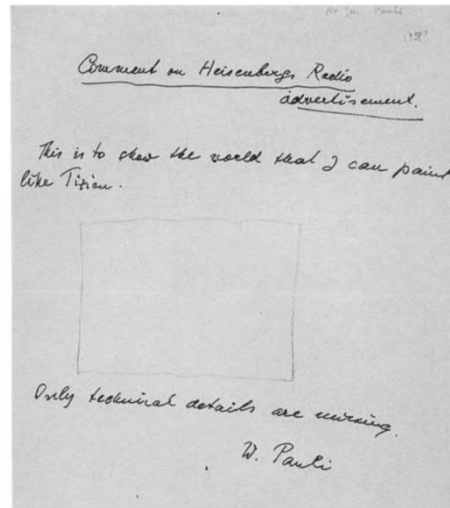 Pauli
Comment on Heisenbergs Radio
advertisement.
This is to show the world that I can paint
like Tizian.
Only technical details are missing.
W. Pauli